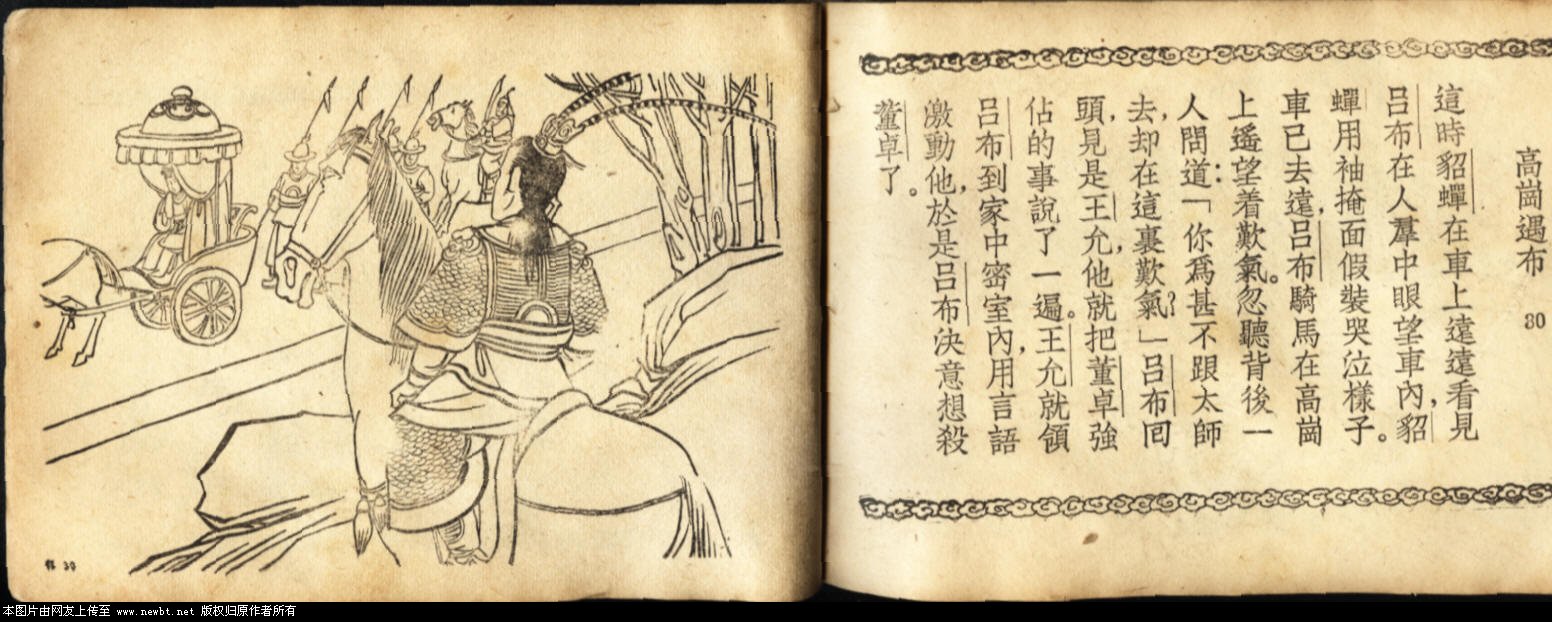 高崗遇布 30
這時貂蟬在車上遠遠看見
呂布在人羣中眼望車內，貂
蟬用袖掩面假裝哭泣樣子。
車已去遠，呂布騎馬在高崗
上遙望着歎氣。忽聽背後一
人問道：「你爲甚不跟太師
去，却在這裏歎氣？」呂布囘
頭，見是王允，他就把董卓強
佔的事說了一遍。王允就領
呂布到家中密室內，用言語
激動他，於是呂布決意想殺
董卓了。
30
本图片由网友上传至 www.newbt.net 版权归原作者所有